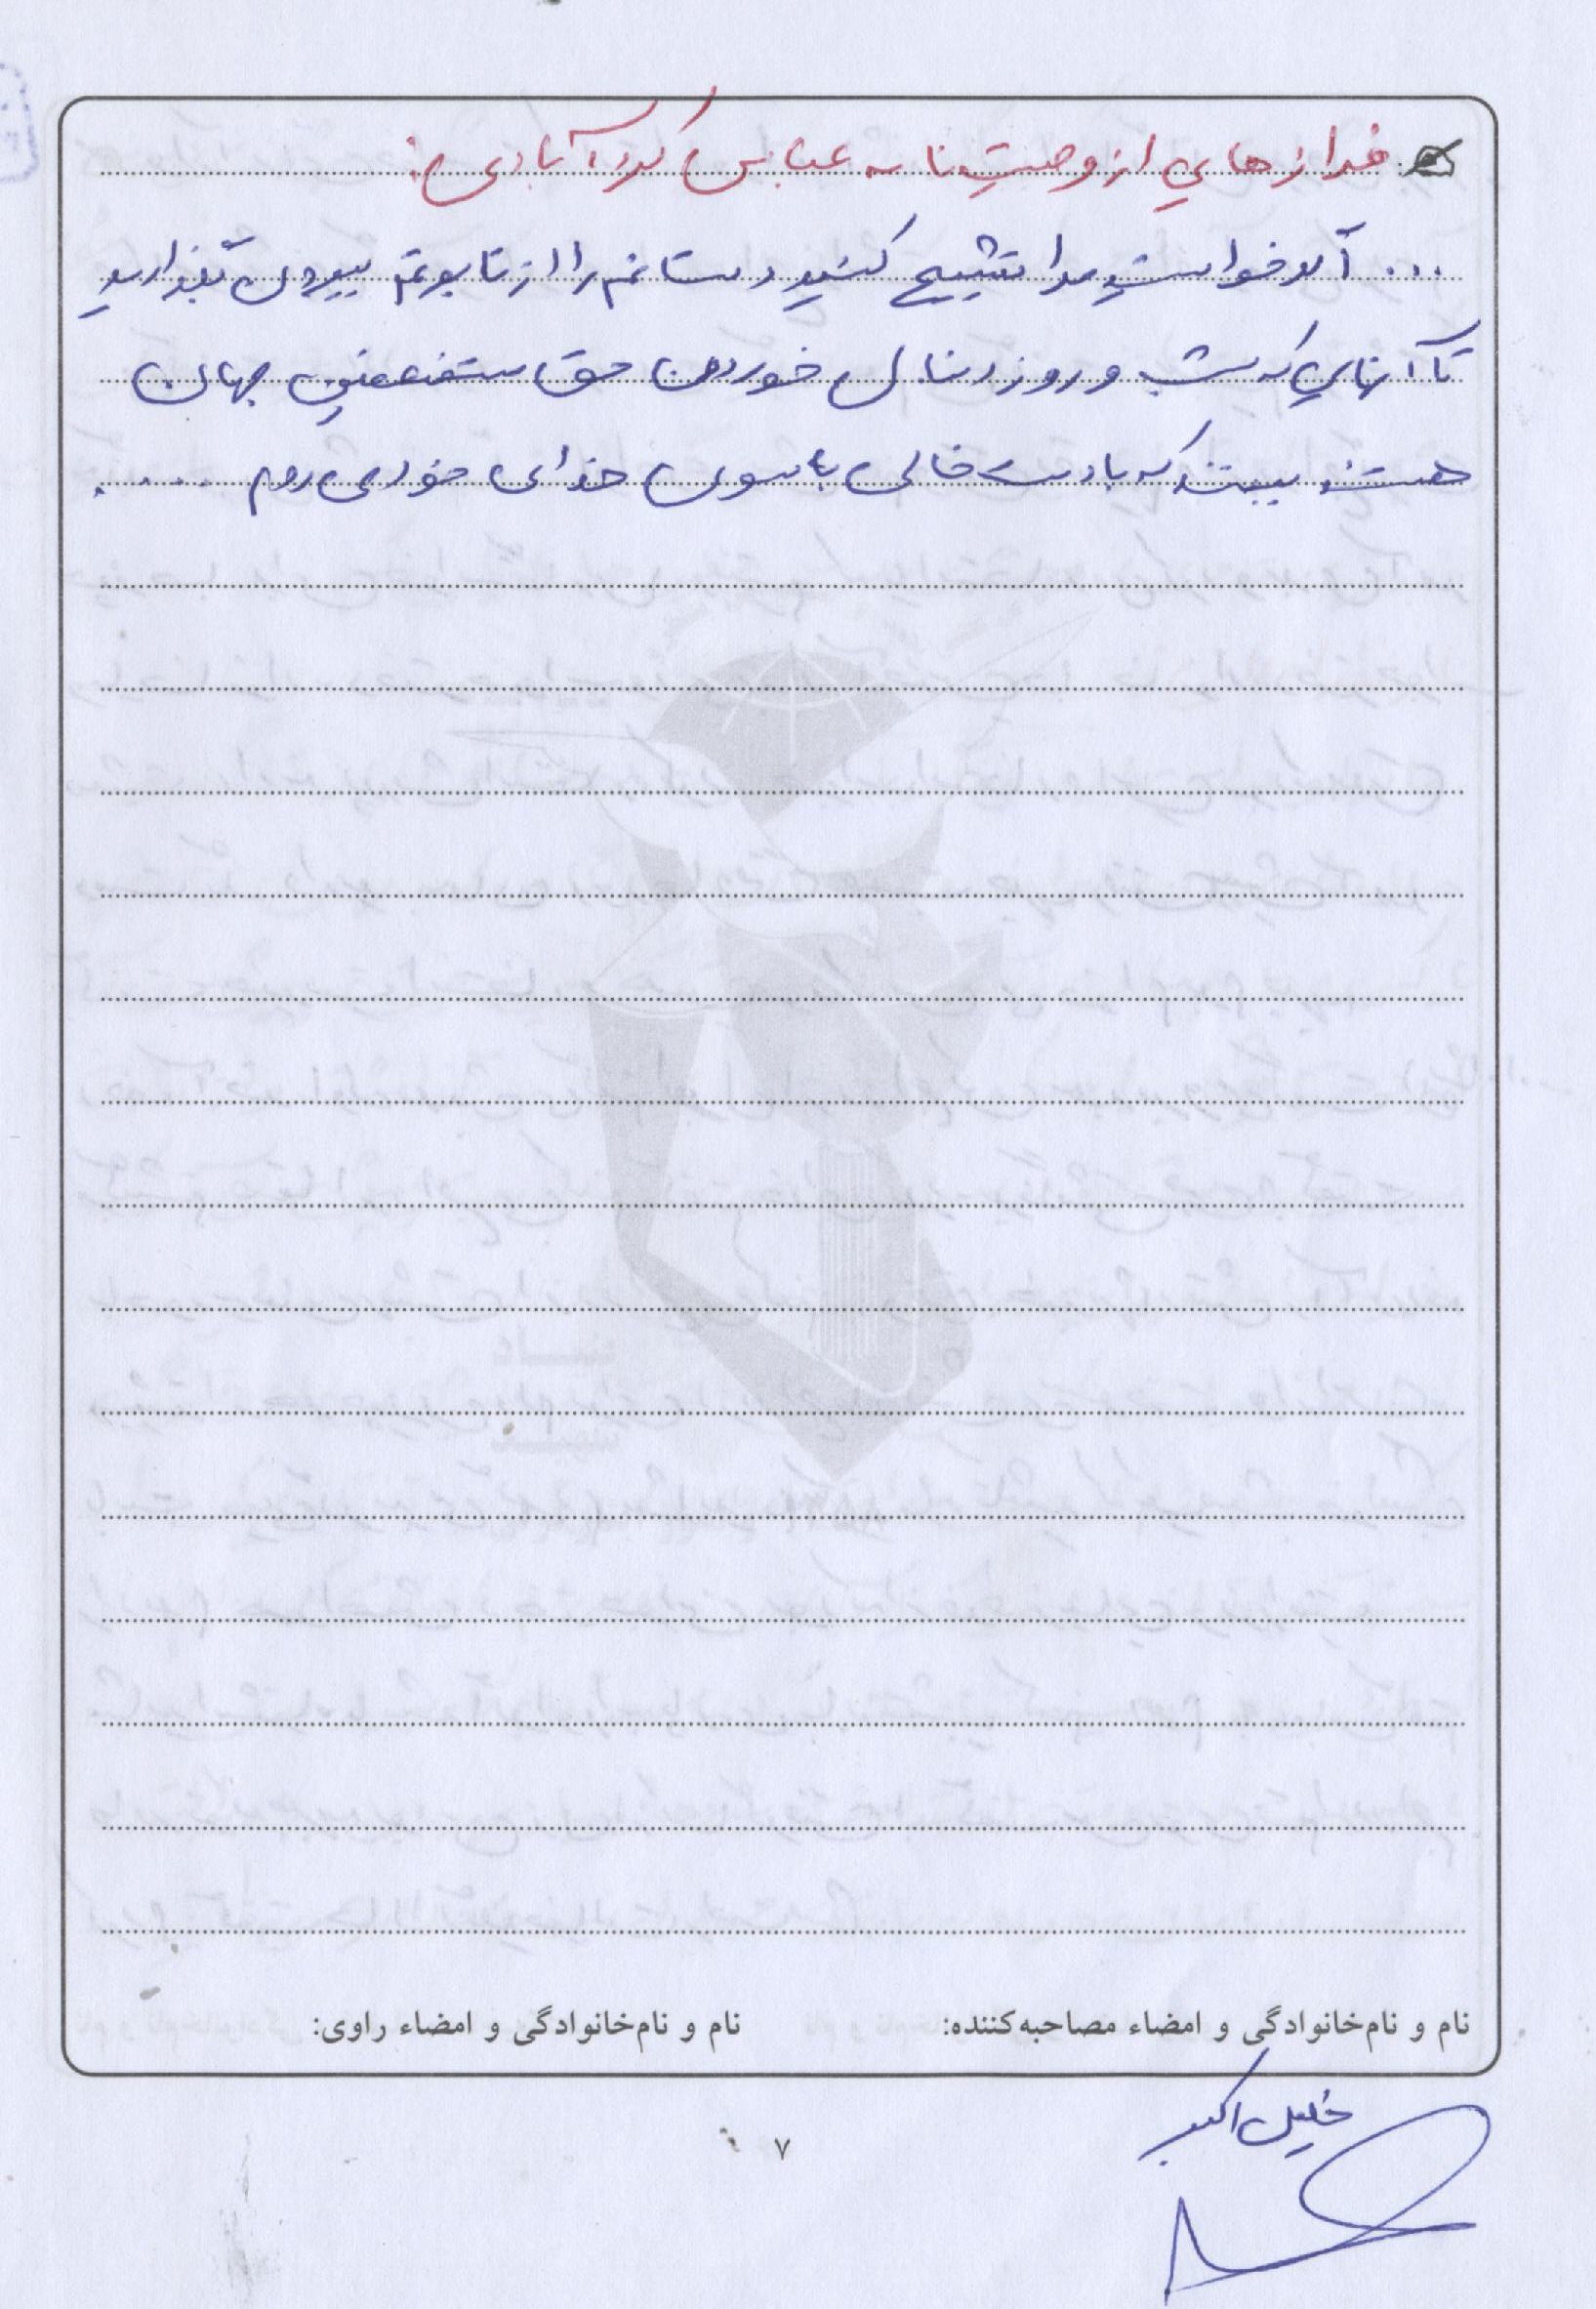 فرازهایی از وصیت نامه عباس کردآبادی:
... اگر خواستید مرا تشییع کنید دستانم را از تابوتم بیرون بگذارید
تا آنهایی که شب و روز دنبال خوردن حق مستضعفین جهان
هستند ببینند که با دست خالی به سوی خدای خود می روم ....
نام و نام‌خانوادگی و امضاء مصاحبه‌کننده:
نام و نام‌خانوادگی و امضاء راوی:
خلیل اکبر
۷